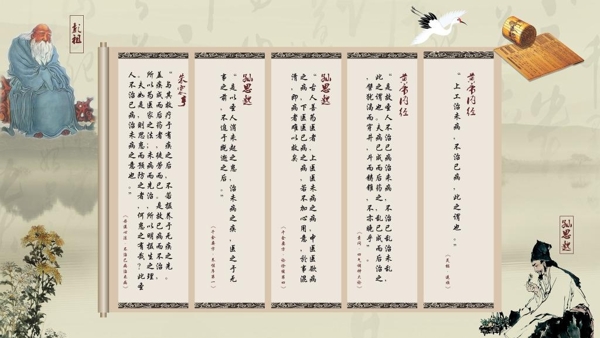 彭祖
黄帝内经
“上工治未病,不治已病,此之谓也。”
(灵枢 逆顺)
黄帝内经
“是故圣人不治已病治未病,不治已乱治未乱,
此之谓也。夫病已成而后药之,乱已成而后治之,
譬犹渴而穿井,斗而铸锥,不亦晚乎”
(素问 四气调神大论)
孙思邈
“古人善为医者,上医医未病之病,中医医欲病
之病,下医医已病之病,若不加心用意,于事混
淆,即病者难以救矣
(千金要方 论诊候第四)
孙思邈
“是以圣人消未起之患,治未病之疾,医之于无
事之前,不追于既逝之后。”
(千金要方)
朱震亨
“与其救疗于有疾之后,不若摄养于无疾之先。
盖疾成而后药者,徒劳而已。是故已病而不治,
所以为医家之法;未病而先治,所以明摄生之理。
夫如是则思患而预防之者,何患之有哉?此圣
人不治已病治未病之意也。”
(丹溪心法 不治已病治未病)
孙思邈